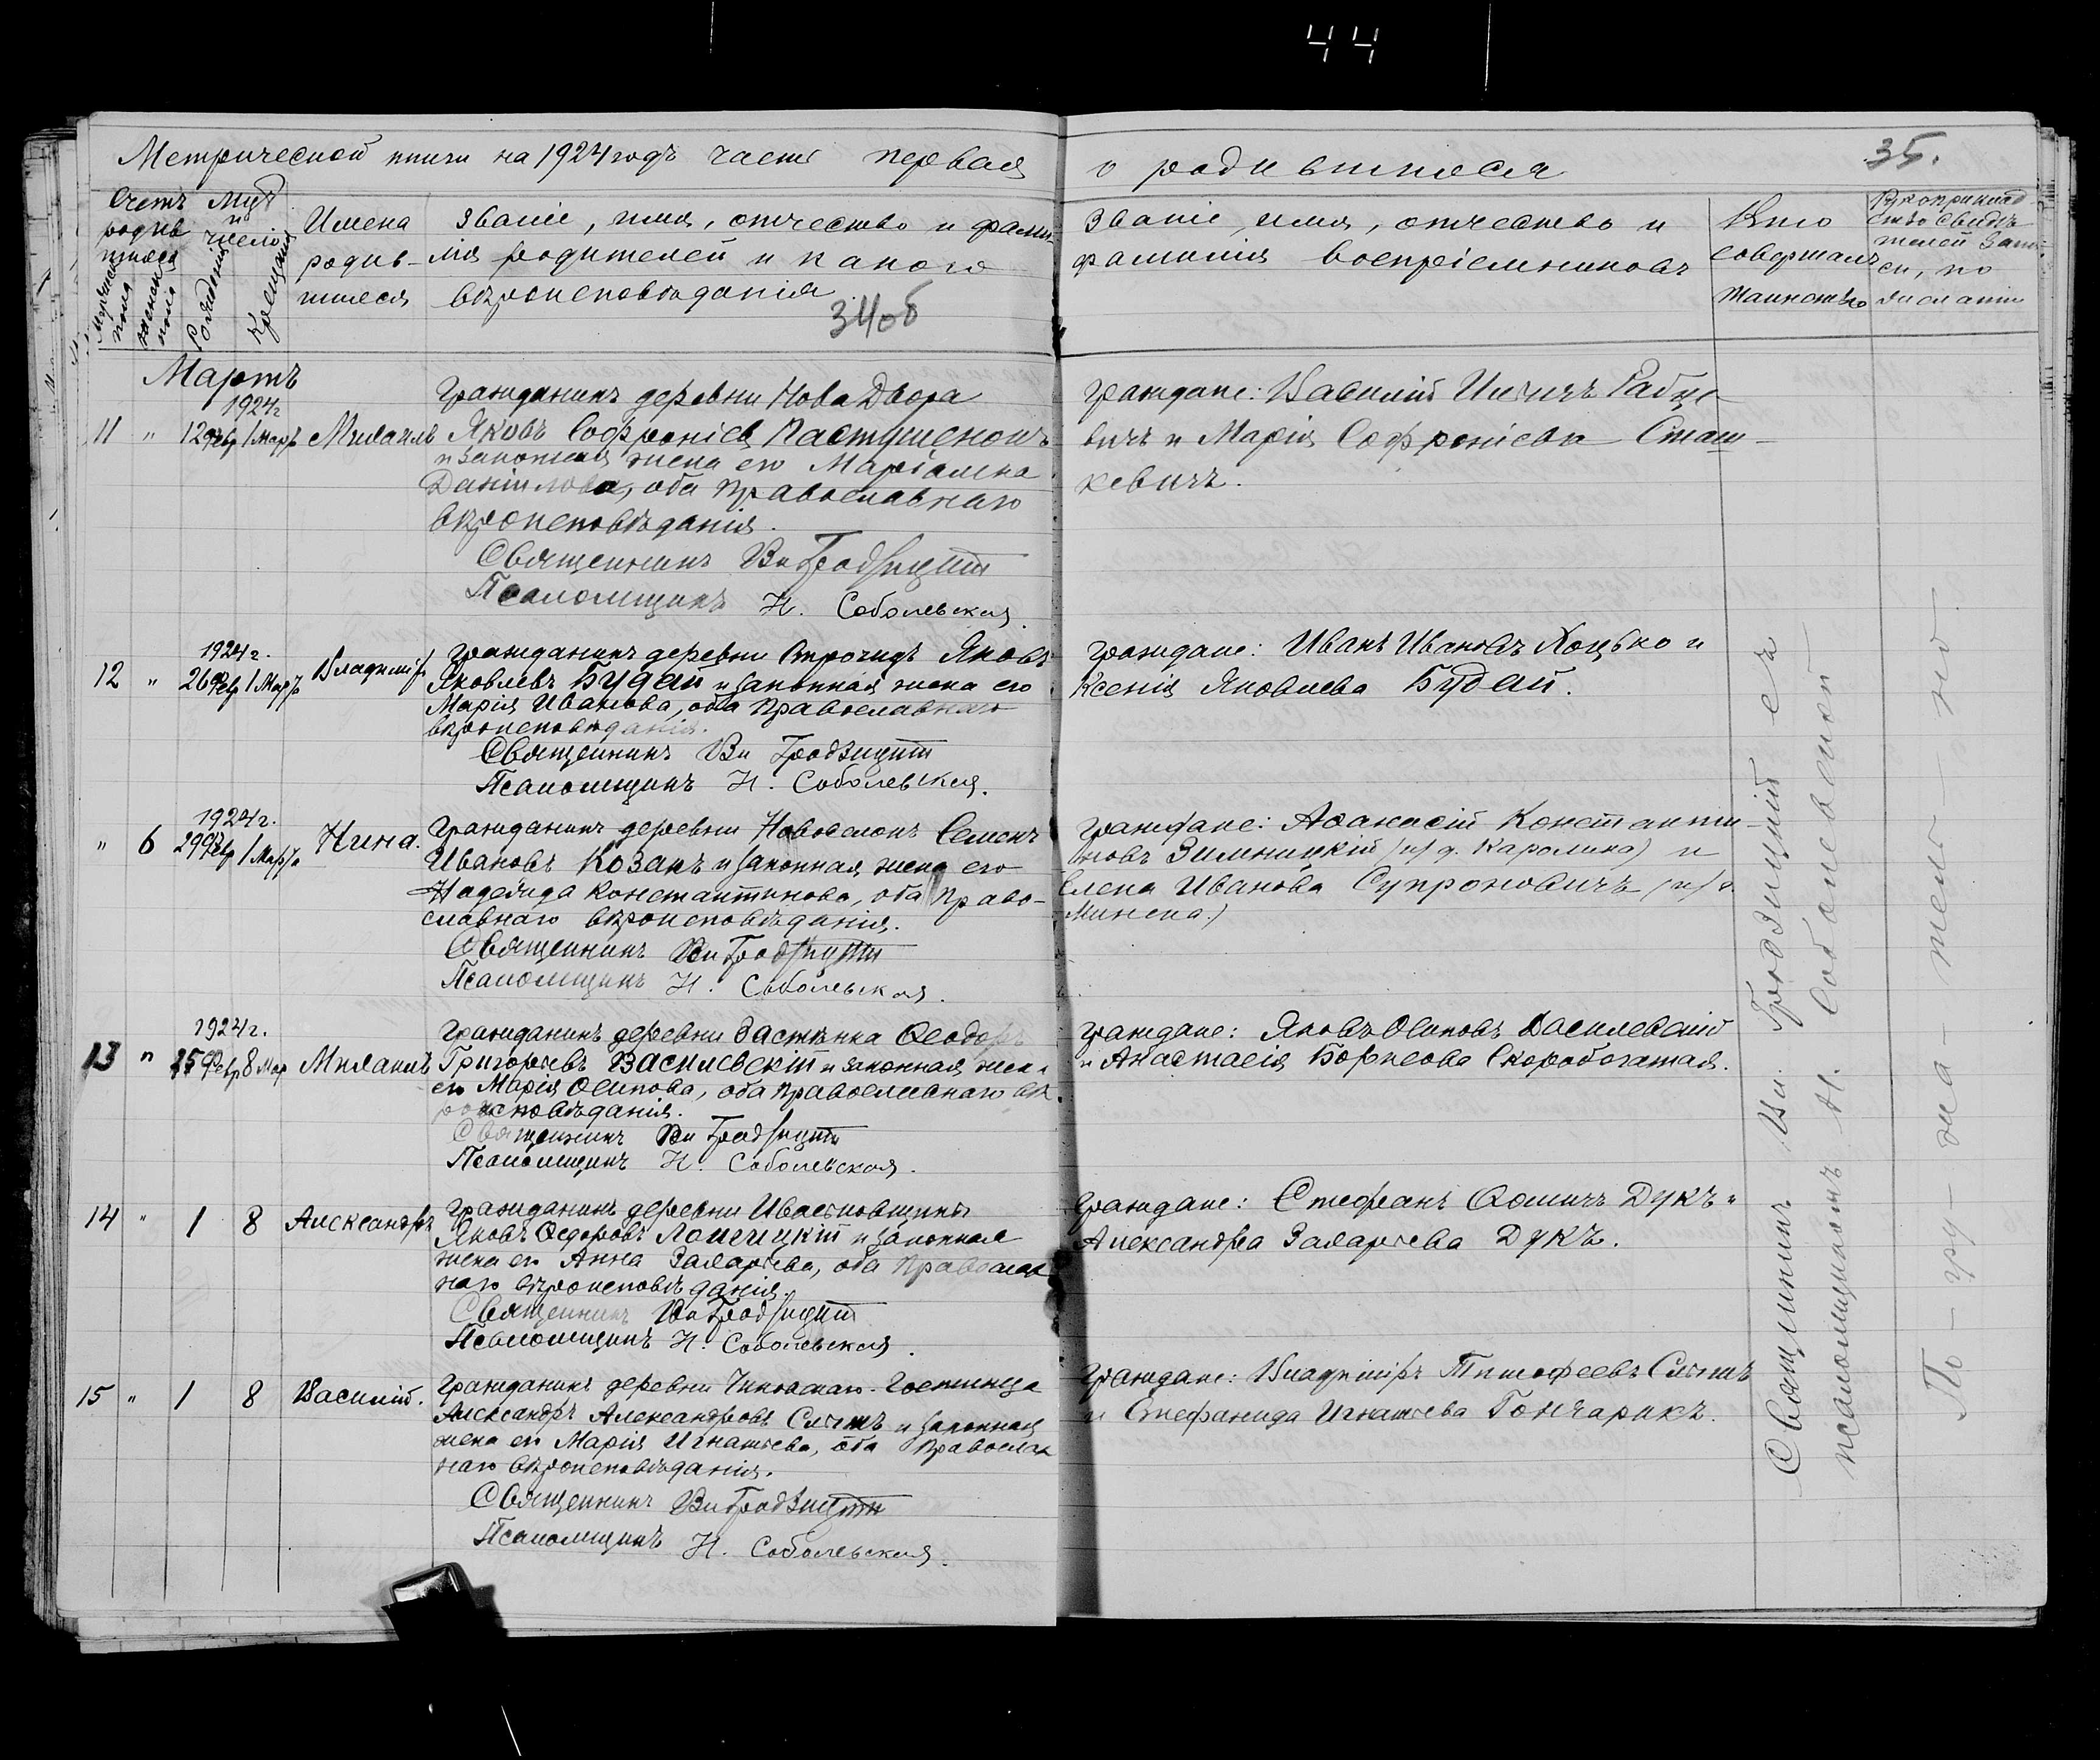 44
Метрической книги на 1924 годъ часть первая
о родившихся
35.
Счетъ родившихся
Мужескаго пола
Женскаго пола
Мѣс. и число
Рожденія
Крещенія
Имена
родив-
шихся
Званіе, имя, отчество и фами-
лія родителей и какого
вѣроисповѣданія
34об
Званіе, имя, отчество и
фамилія воспріемниковъ
Кто
совершалъ
таинство
Рукоприклад-
ство свидѣ-
телей запи-
си, по
желанію
Мартъ
1924 г
11 " 12 Февр 1 Мартъ Михаилъ
Гражданинъ деревни Нова Двора
Яковъ Софроніевъ Пастушенокъ
и законная жена его Маріамна
Даниілова, оба Православнаго
вѣроисповѣданія.
Священникъ Вл Гродзицкій
Псаломщикъ Н. Соболевская.
Граждане: Василій Ильичъ Рабце-
вичъ и Марія Софроніева Сташ-
кевичъ.
1924 г.
12 " 26 Февр 1 Март Владиміръ
Гражданинъ деревни Строчицъ Яковъ
Яковлевъ Будай и законная жена его
Марія Иванова, оба Православнаго
вѣроисповѣданія.
Священникъ Вл Гродзицкій
Псаломщикъ Н. Соболевская.
Граждане: Иванъ Ивановъ Коцько и
Ксенія Яковлева Будай.
1924 г.
" 6 29 Февр 1 Март Нина.
Гражданинъ деревни Новоселокъ Семенъ
Ивановъ Козакъ и законная жена его
Надежда Константинова, оба Право-
славнаго вѣроисповѣданія.
Священникъ Вл Гродзицкій
Псаломщикъ Н. Соболевская.
Граждане: Аѳанасій Константи-
новъ Зимницкій (из д. Каролина) и
Елена Иванова Супроновичъ (из г.
Минска.)
1924 г.
13 " 25 Февр 8 Мар Михаилъ
Гражданинъ деревни Застѣнка Ѳеодоръ
Григорьевъ Василевскій и законная жена
его Марія Осипова, оба Православнаго вѣ-
роисповѣданія.
Священникъ Вл Гродзицкій
Псаломщикъ Н. Соболевская.
Граждане: Яковъ Осиповъ Василевскій
и Анастасія Борисова Скоробогатая.
14 " 1 8 Александръ
Гражданинъ деревни Ивасиновщины
Яковъ Ѳедоровъ и законная
жена его Анна Захарьева, оба Православ-
наго вѣроисповѣданія.
Священникъ Вл Гродзицкій
Псаломщикъ Н. Соболевская.
Граждане: Стефанъ Ѳомичъ Дукъ и
Александра Захарьева Дукъ.
15 " 1 8 Василій.
Гражданинъ деревни Чиковскаго-Гостинца
Александръ Александровъ Сычъ и законная
жена его Марія Игнатьева, оба Православ-
наго вѣроисповѣданія.
Священникъ Вл Гродзицкій
Псаломщикъ Н. Соболевская.
Граждане: Владиміръ Тимофеевъ Сычъ
и Стефанида Игнатьева Гончарикъ.
Священникъ Вл. Гродзицкій съ
псаломщикомъ Н. Соболевской
По-гру-жа-тель-но